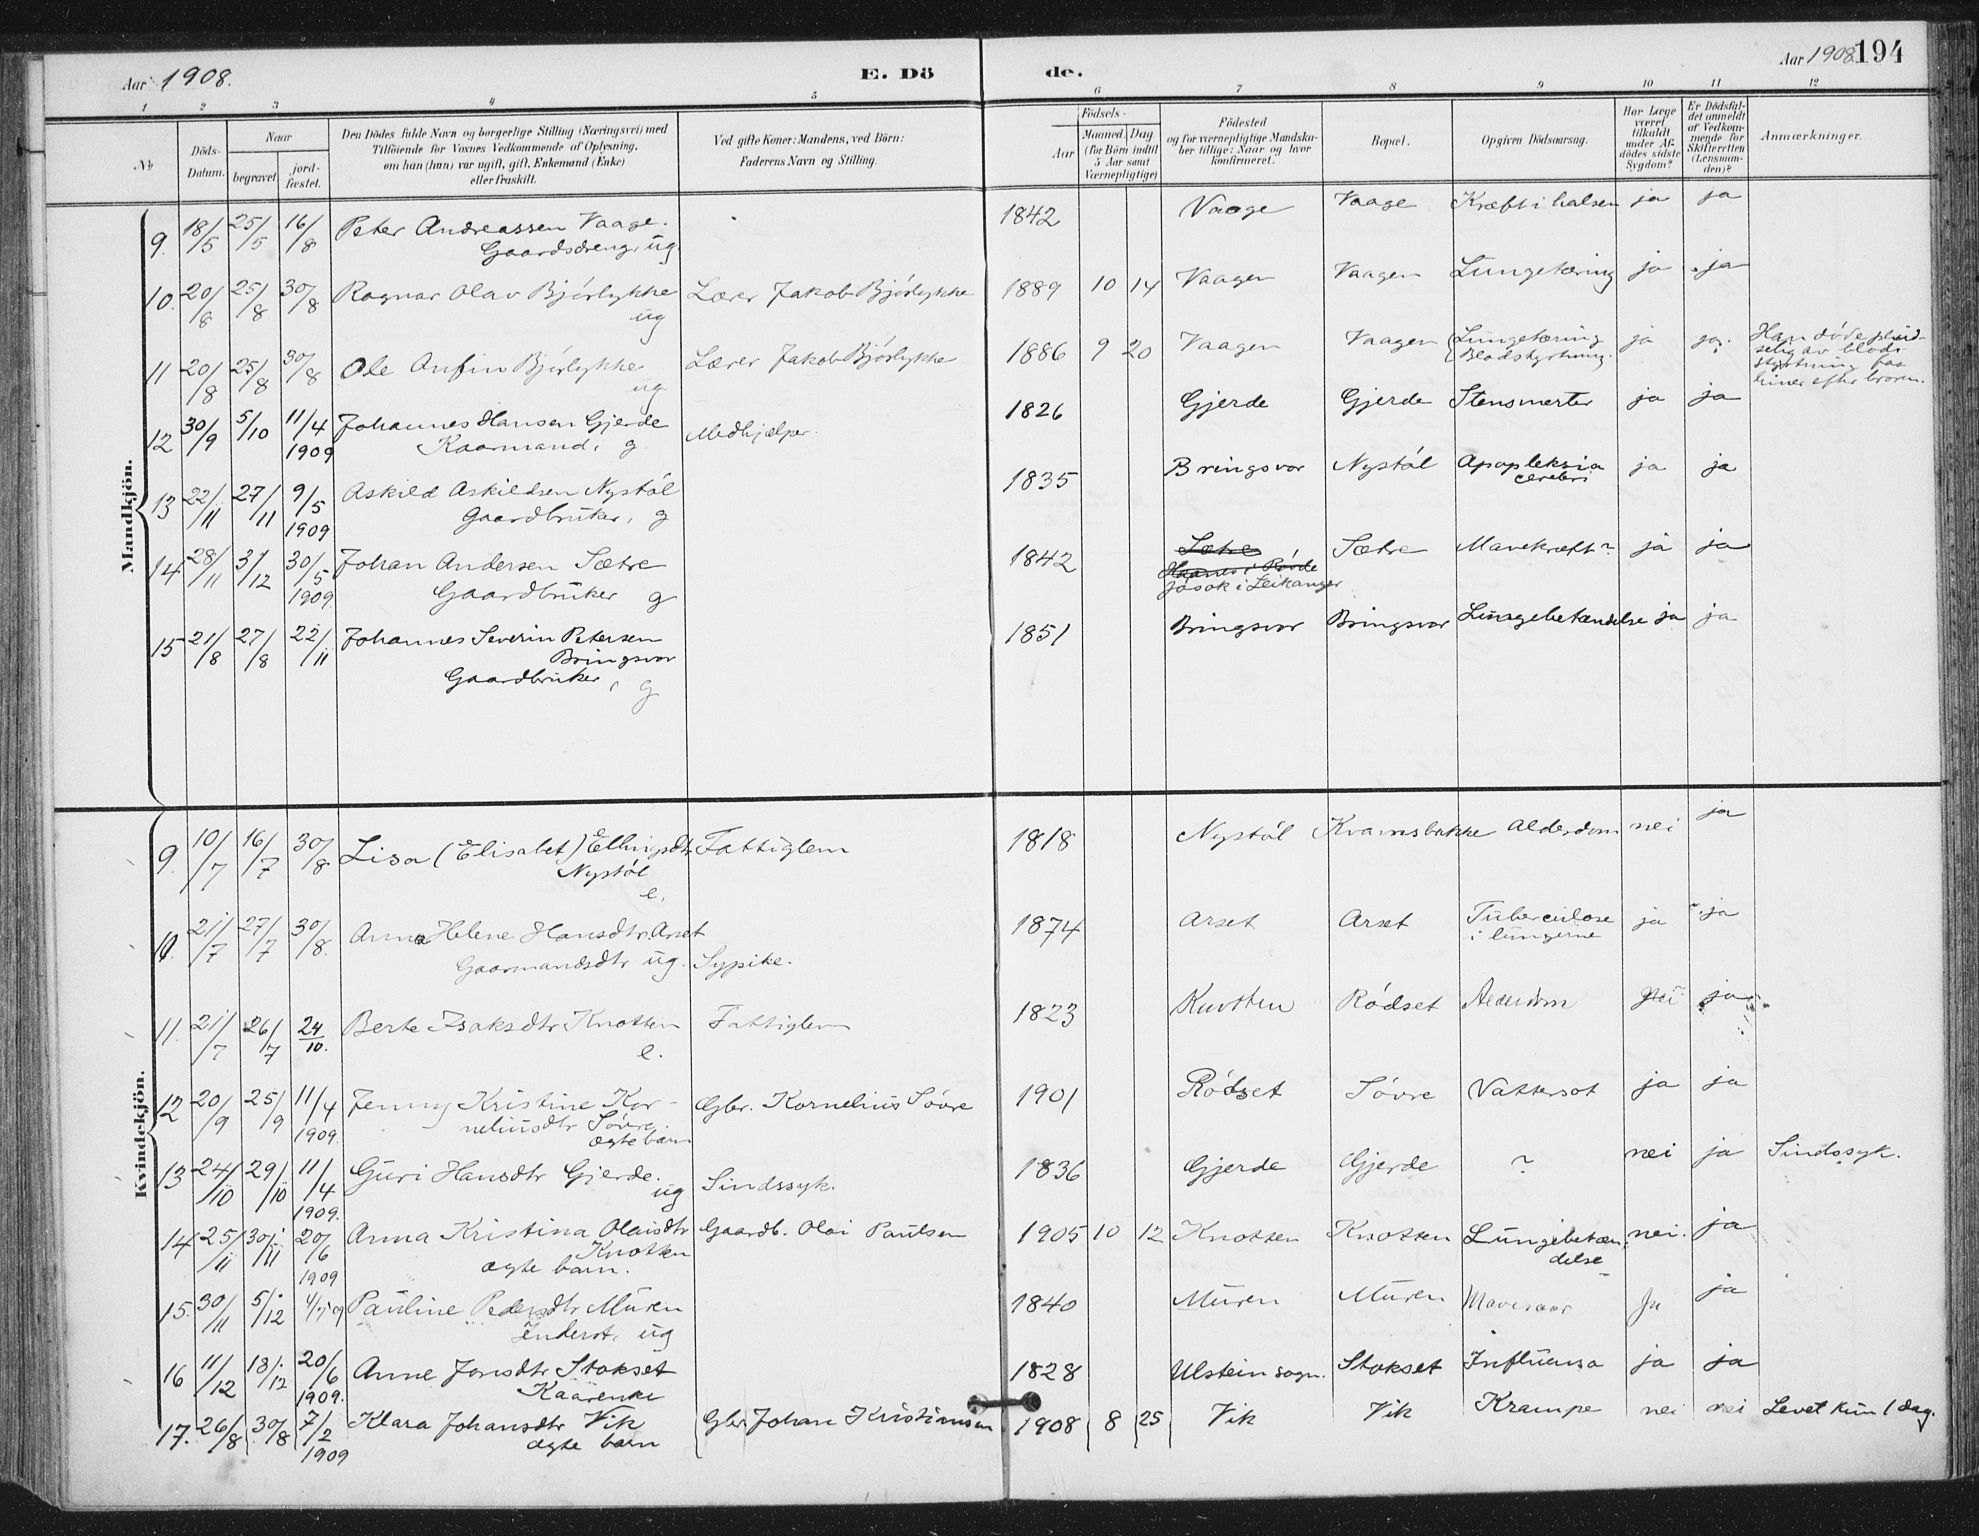 Aar 1908.
E. Dö
de.
Aar 1908.
194
1 2 3 4 5 6 7 8 9 10 11 12
No
Döds-Datum.
Naar
begravet.
jord-fæstet.
Den Dödes fulde Navn og borgerlige Stilling (Næringsvei) med
Tilföiende for Voxnes Vedkommende af Oplysning,
om han (hun) var ugift, gift, Enkemand (Enke)
eller fraskilt.
Ved gifte Koner: Mandens, ved Börn:
Faderens Navn og Stilling.
Födsels-
Aar
Maaned. Dag
(for Börn indtil
5 Aar samt
Værnepligtige)
Födested
og for værnepligtige Mandska-
ber tillige: Naar og hvor
konfirmeret.
Bopæl.
Opgiven Dödsaarsag.
Har Læge
været
tilkaldt
under Af-
dödes sidste
Sygdom?
Er Dödsfal-
det anmeldt
af Vedkom-
mende for
Skifteretten
(Lensman-
den)?
Anmærkninger.
Mandkjön.
9. 18/5 25/5 16/8 Peter Andreassen Vaage. 1842 Vaage Vaage Kræft i halsen ja ja
Gaardsdreng, ug.
10. 20/8 25/8 30/8 Ragnar Olav Bjørlykke Lærer Jakob Bjørlykke 1889 10 14 Vaagen Vaagen Lungetæring ja ja
ug
11 20/8 25/8 30/8 Ole Anfin Bjørlykke Lærer Jakob Bjørlykke 1886 9 20 Vaagen Vaagen Lungetæring ja ja. Han døde plud-
ug Blodstyrtning. selig av blod-
styrtning faa
timer efter broren.
12 30/9 5/10 11/4 1909 Johannes Hansen Gjerde Medhjælper. 1826 Gjerde Gjerde Stensmerter ja ja
Kaarmand, g
13 22/11 27/11 9/5 1909 Askild Askildsen Nystøl 1835 Bringsvor Nystøl Apopleksia ja ja
Gaardbruker, g cerebri
14 28/11 3/12 30/5 1909. Johan Andersen Sætre 1842 Sætre Sætre Mavekræft? ja ja
Gaardbruker g Haanes i Rovde
Jøsok i Leikanger
15 21/8 27/8 22/11 Johannes Severin Petersen 1851 Bringsvor Bringsvor Lungebetændelse ja ja
Bringsvor
Gaardbruker, g
Kvindekjön.
9. 10/7 16/7 30/8 Lisa (Elisabet) Ellingsdtr Fattiglem 1818 Nystøl Kvamsbakke Alderdom nei ja
Nystøl
e.
10. 21/7 27/7 30/8. Anna Helene Hansdtr. Arset 1874 Arset Arset Tuberculose ja ja
Gaarmandsdtr ug. Sypike. i lungerne
11. 21/7 26/7 24/10. Berte Isaksdtr Knotten Fattiglem 1823 Knotten Rødset Alderdom nei ja
e.
12 20/9 25/9 11/4 1909. Jenny Kristine Kor- Gbr. Kornelius Søvre 1901 Rødset Søvre Vattersot ja ja
neliusdtr Søvre.
ægte barn
13 24/10 29/10 11/4 1909. Guri Hansdtr Gjerde. Sindssyk. 1836 Gjerde Gjerde ? nei ja Sindssyk.
ug
14 25/11 30/11 20/6 1909 Anna Kristina Olaisdtr Gaardb. Olai Paulsen 1905 10 12 Knotten Knotten Lungebetæn- nei. ja
Knotten delse
ægte barn.
15. 30/11 5/12 Pauline Pedersdtr Muren 1840 Muren Muren Mavesaar Ja ja
Inderst, ug
16 11/12 18/12 20/6 1909. Anne Jonsdtr Stokset 1828 Ulstein sogn. Stokset Influensa ja ja
Kaarenke
17. 26/8 30/8 7/2 1909 Klara Johansdtr Vik Gbr Johan Kristiansen 1908 8 25 Vik Vik Krampe nei nei Levet kun 1 dag.
ægte barn